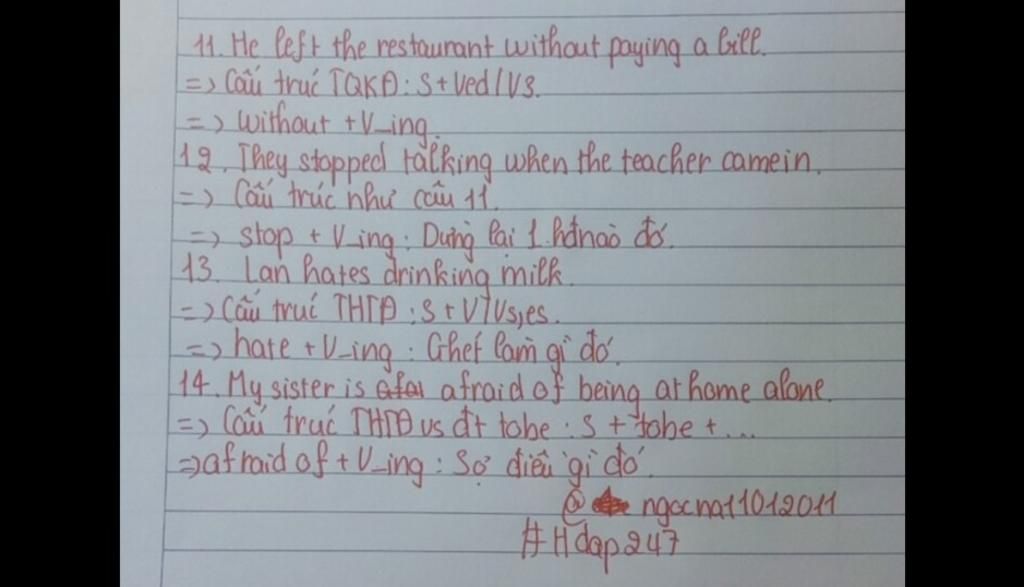 11. He left the restaurant without paying a bill.
=> Cấu trúc TQKĐ: S + Ved/V3.
=> without + V_ing.
12. They stopped talking when the teacher camein.
=> Cấu trúc như câu 11.
=> stop + V_ing: Dừng lại 1 hđ nào đó.
13. Lan hates drinking milk.
=> Cấu trúc THTĐ: S + V/Vs,es.
=> hate + V_ing: Ghét làm gì đó.
14. My sister is afraid of being at home alone.
=> Cấu trúc THTĐ vs đt tobe: S + tobe + ...
=> afraid of + V_ing: Sợ điều gì đó.
@ ngocma11012011
#Hdap247